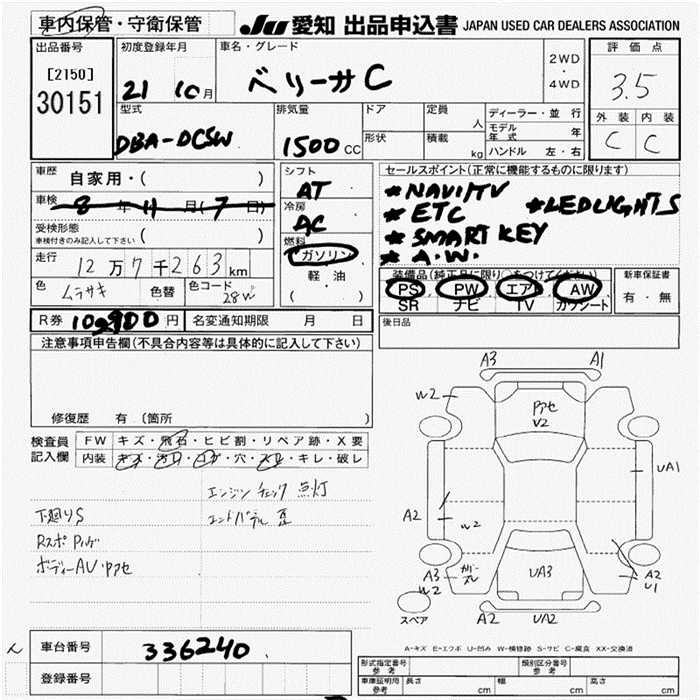 車内保管・守衛保管
JU 愛知 出品申込書 JAPAN USED CAR DEALERS ASSOCIATION
出品番号
[2150]
30151
初度登録年月
21 10月
車名・グレード
ベリーサ C
2WD
・
4WD
評価点
3.5
外装 内装
C C
型式
DBA-DC5W
排気量
1500 CC
ドア
形状
定員
人
積載
kg
ディーラー・並行
モデル年式 年
ハンドル 左・右
車歴
自家用・( )
車検
8 年 11 月 ( 7 日)
受検形態
車検付きのみ記入して下さい
( )
走行
12万7千263km
色
ムラサキ
色替
色コード
28W
シフト
AT
冷房
AC
燃料
ガソリン
軽・油
( )
セールスポイント(正常に機能するものに限ります)
* NAVI/TV
* ETC *LED LIGHTS
* SMART KEY
* A.W.
装備品(純正品に限り○をつけてください)
PS PW エアB AW
SR ナビ TV カワシート
新車保証書
有・無
R券 10,900円 名変通知期限 月 日
後日品
注意事項申告欄(不具合内容等は具体的に記入して下さい)
修復歴 有 (箇所
検査員
記入欄
FW キズ・飛石・ヒビ割・リペア跡・X要
内装 キズ・汚レ・コゲ・穴・スレ・キレ・破レ
エンジンチェック点灯
下廻りS
ボディーAU
A3 A1
W2
アセ
V2
UA1
A2
W2
A3
W2
UA3
A2
U1
スペア
A2 UA2
A-キズ E-エクボ U-凹み W-補修跡 S-サビ C-腐食 XX-交換済
車台番号
336240
登録番号
形式指定番号
参考
類別区分番号
参考
車庫証明用
参考
長さ cm 幅 cm 高さ cm